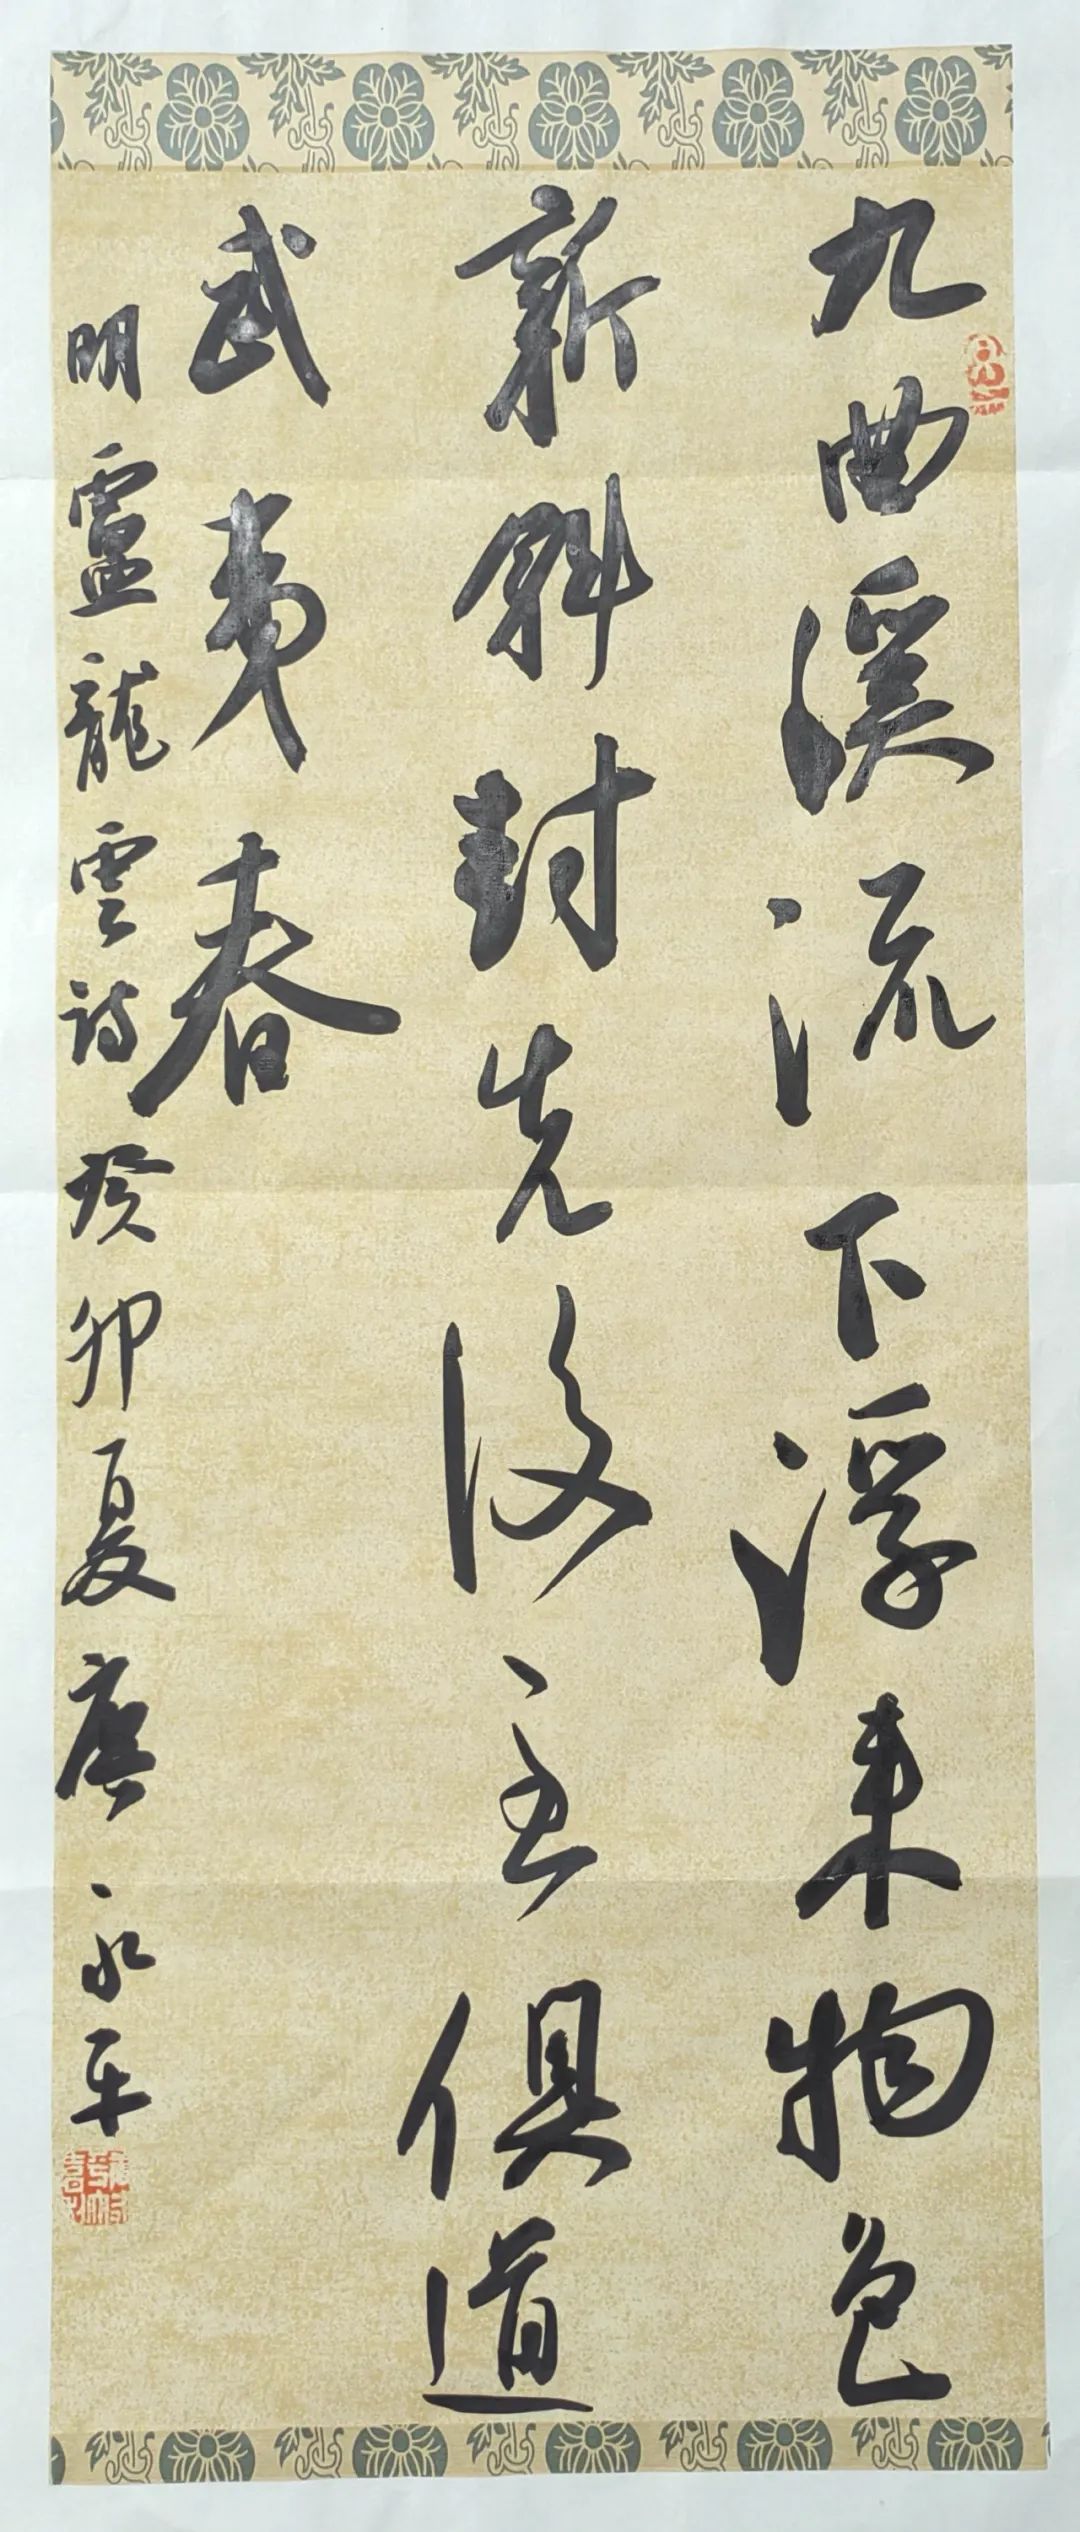 九曲溪流下浮来物色
新斜封先後至俱道
武夷春
明盧龍雲詩癸卯夏唐永平